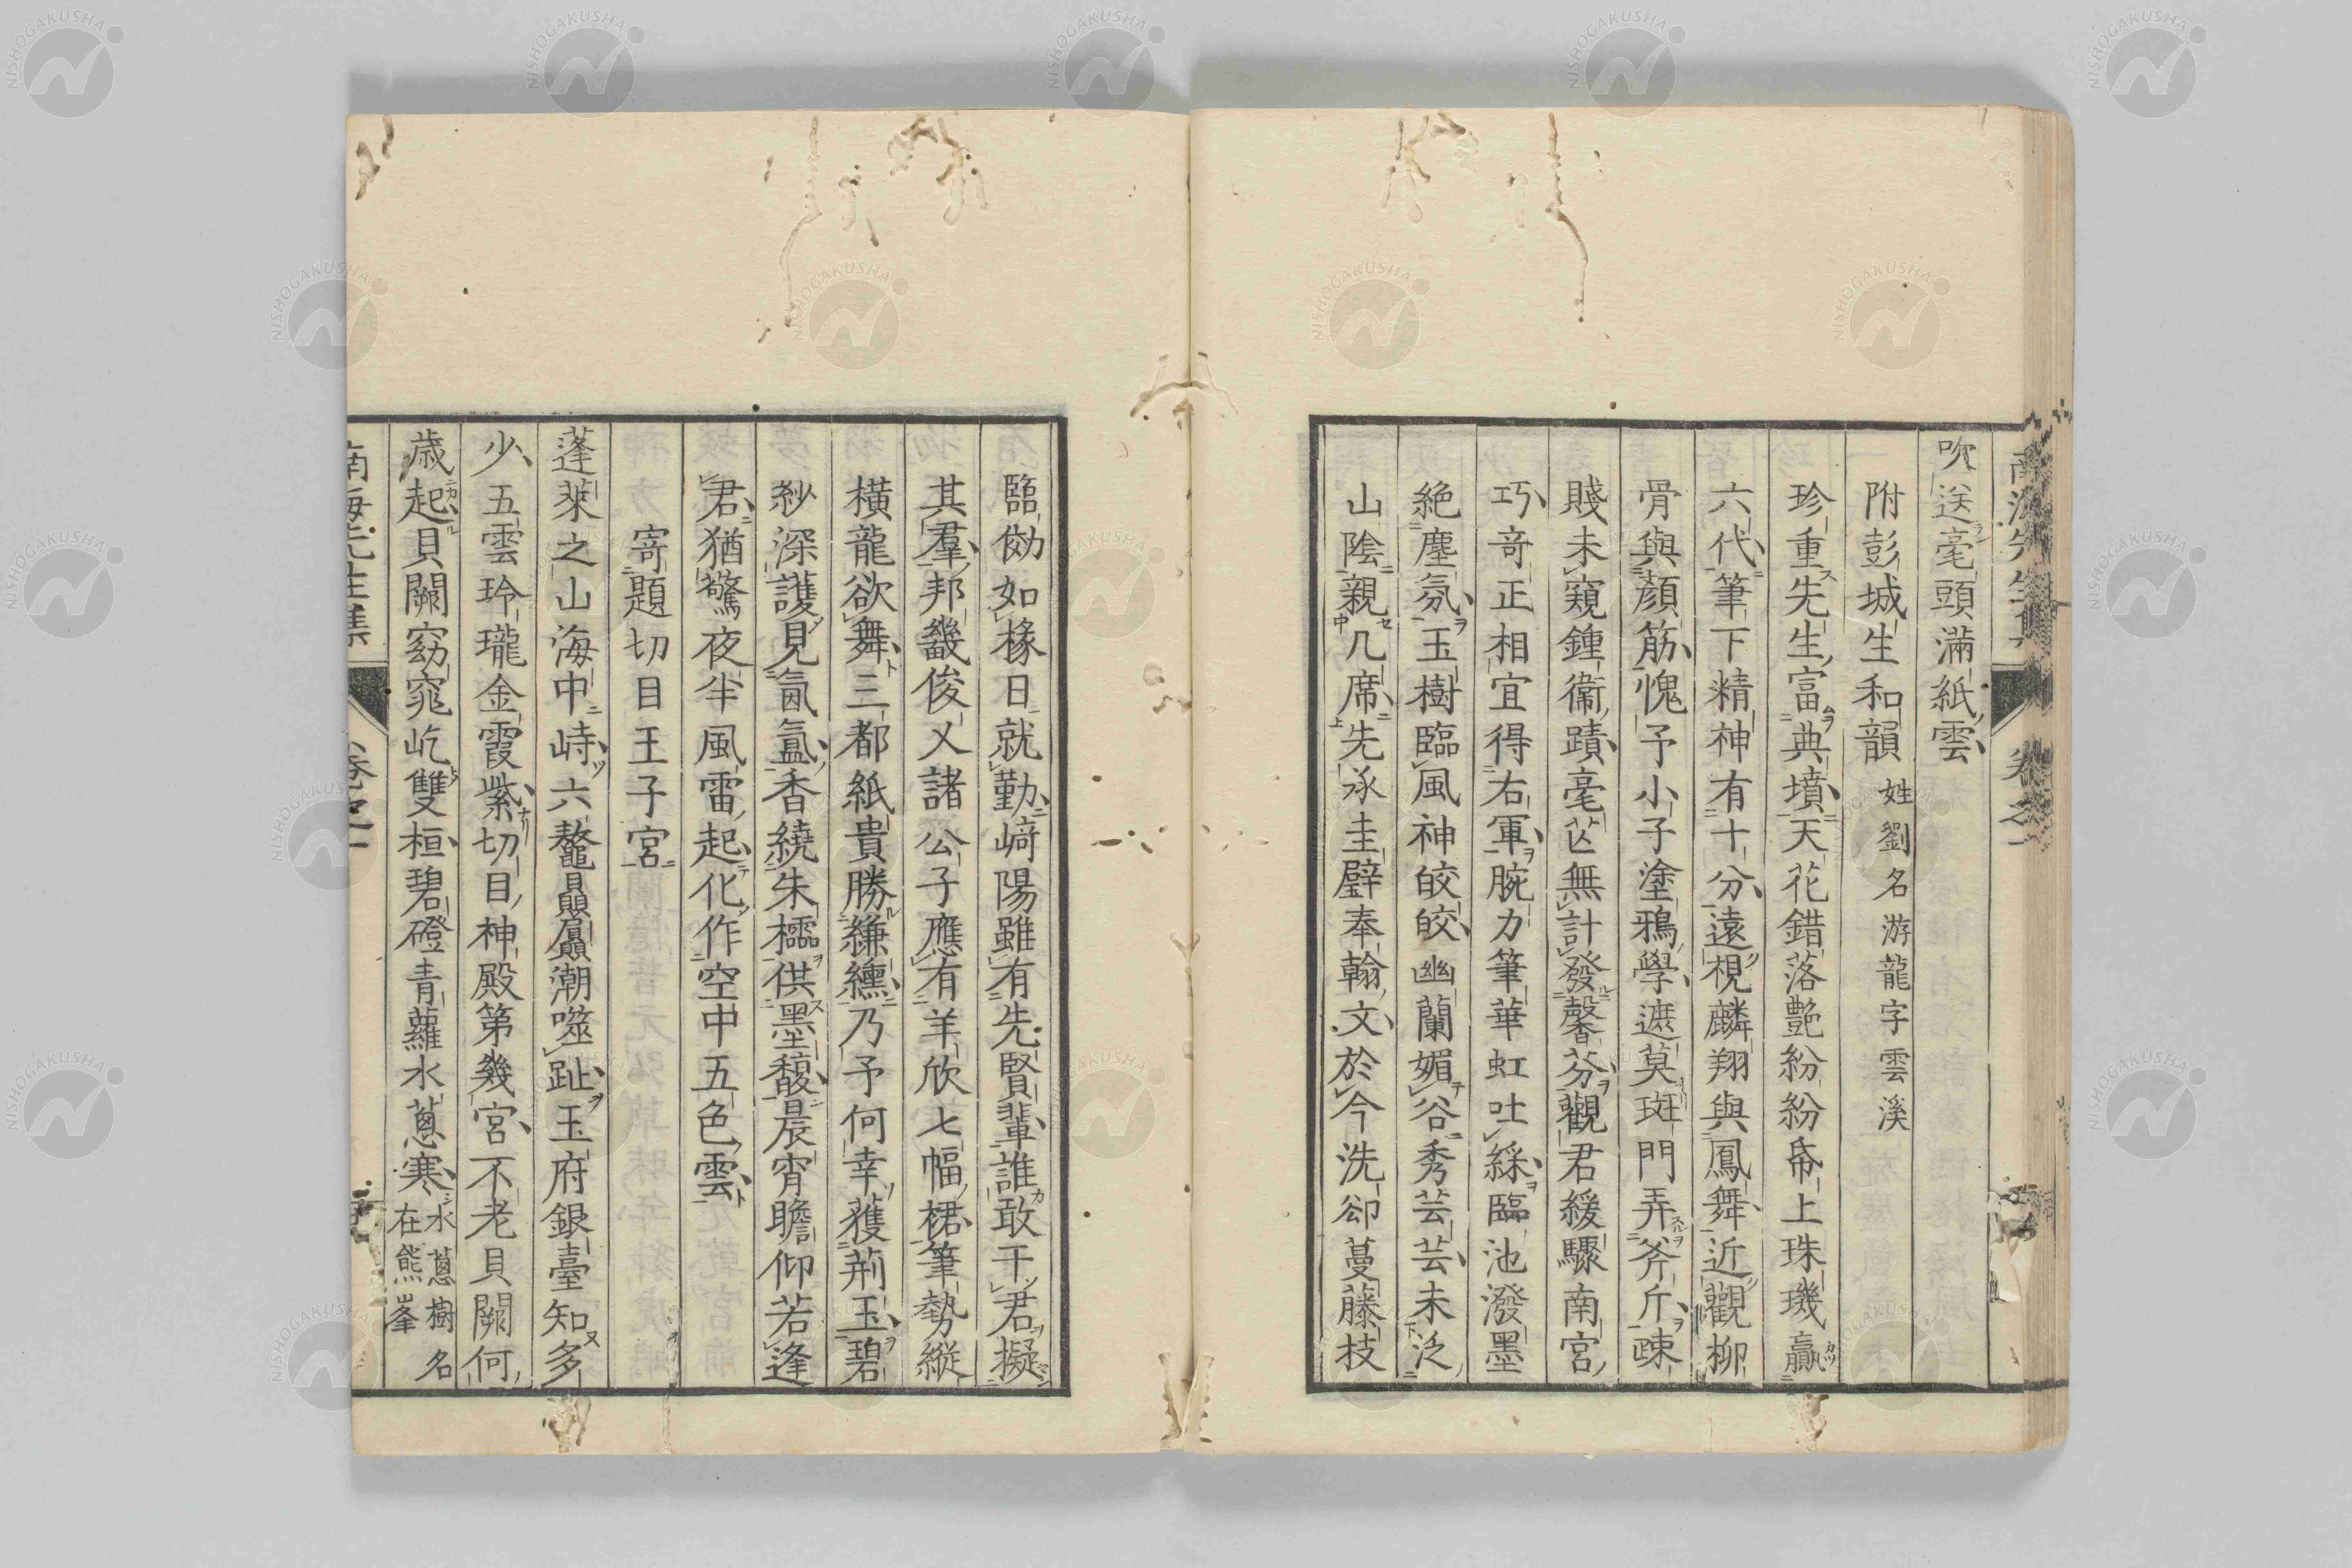 吹送毫頭滿紙雲
附彭城生和韻 姓劉名游龍字雲溪
珍重先生富典墳天花錯落艷紛紛帋上珠璣贏
六代筆下精神有十分遠視麟翔與鳳舞近觀柳
骨與顏筋愧予小子塗鴉學遮莫斑門弄斧斤疎
賤未窺鍾衞蹟毫芒無計發馨芬觀君緩驟南宮
巧奇正相宜得右軍腕力筆華虹吐綵臨池潑墨
絶塵氛玉樹臨風神皎皎幽蘭媚谷秀芸芸未泛
山陰親几席先承圭璧奉翰文於今洗卻蔓藤枝
臨倣如椽日就勤﨑陽雖有先賢輩誰敢干君擬
其羣邦畿俊乂諸公子應有羊欣七幅裙筆勢縱
橫龍欲舞三都紙貴勝縑纁乃予何幸獲荊玉碧
紗深護見氤氳香繞朱櫺供墨馥晨宵瞻仰若逢
君猶驚夜半風雷起化作空中五色雲
寄題切目王子宮
蓬萊之山海中峙六鼇贔屭潮噬趾玉府銀臺知多
少五雲玲瓏金霞紫切目神殿第幾宮不老貝闕何
歳起貝闕窈窕屹雙桓碧磴青蘿水蔥寒 水蔥樹名在熊峯
南海先生集 卷之一